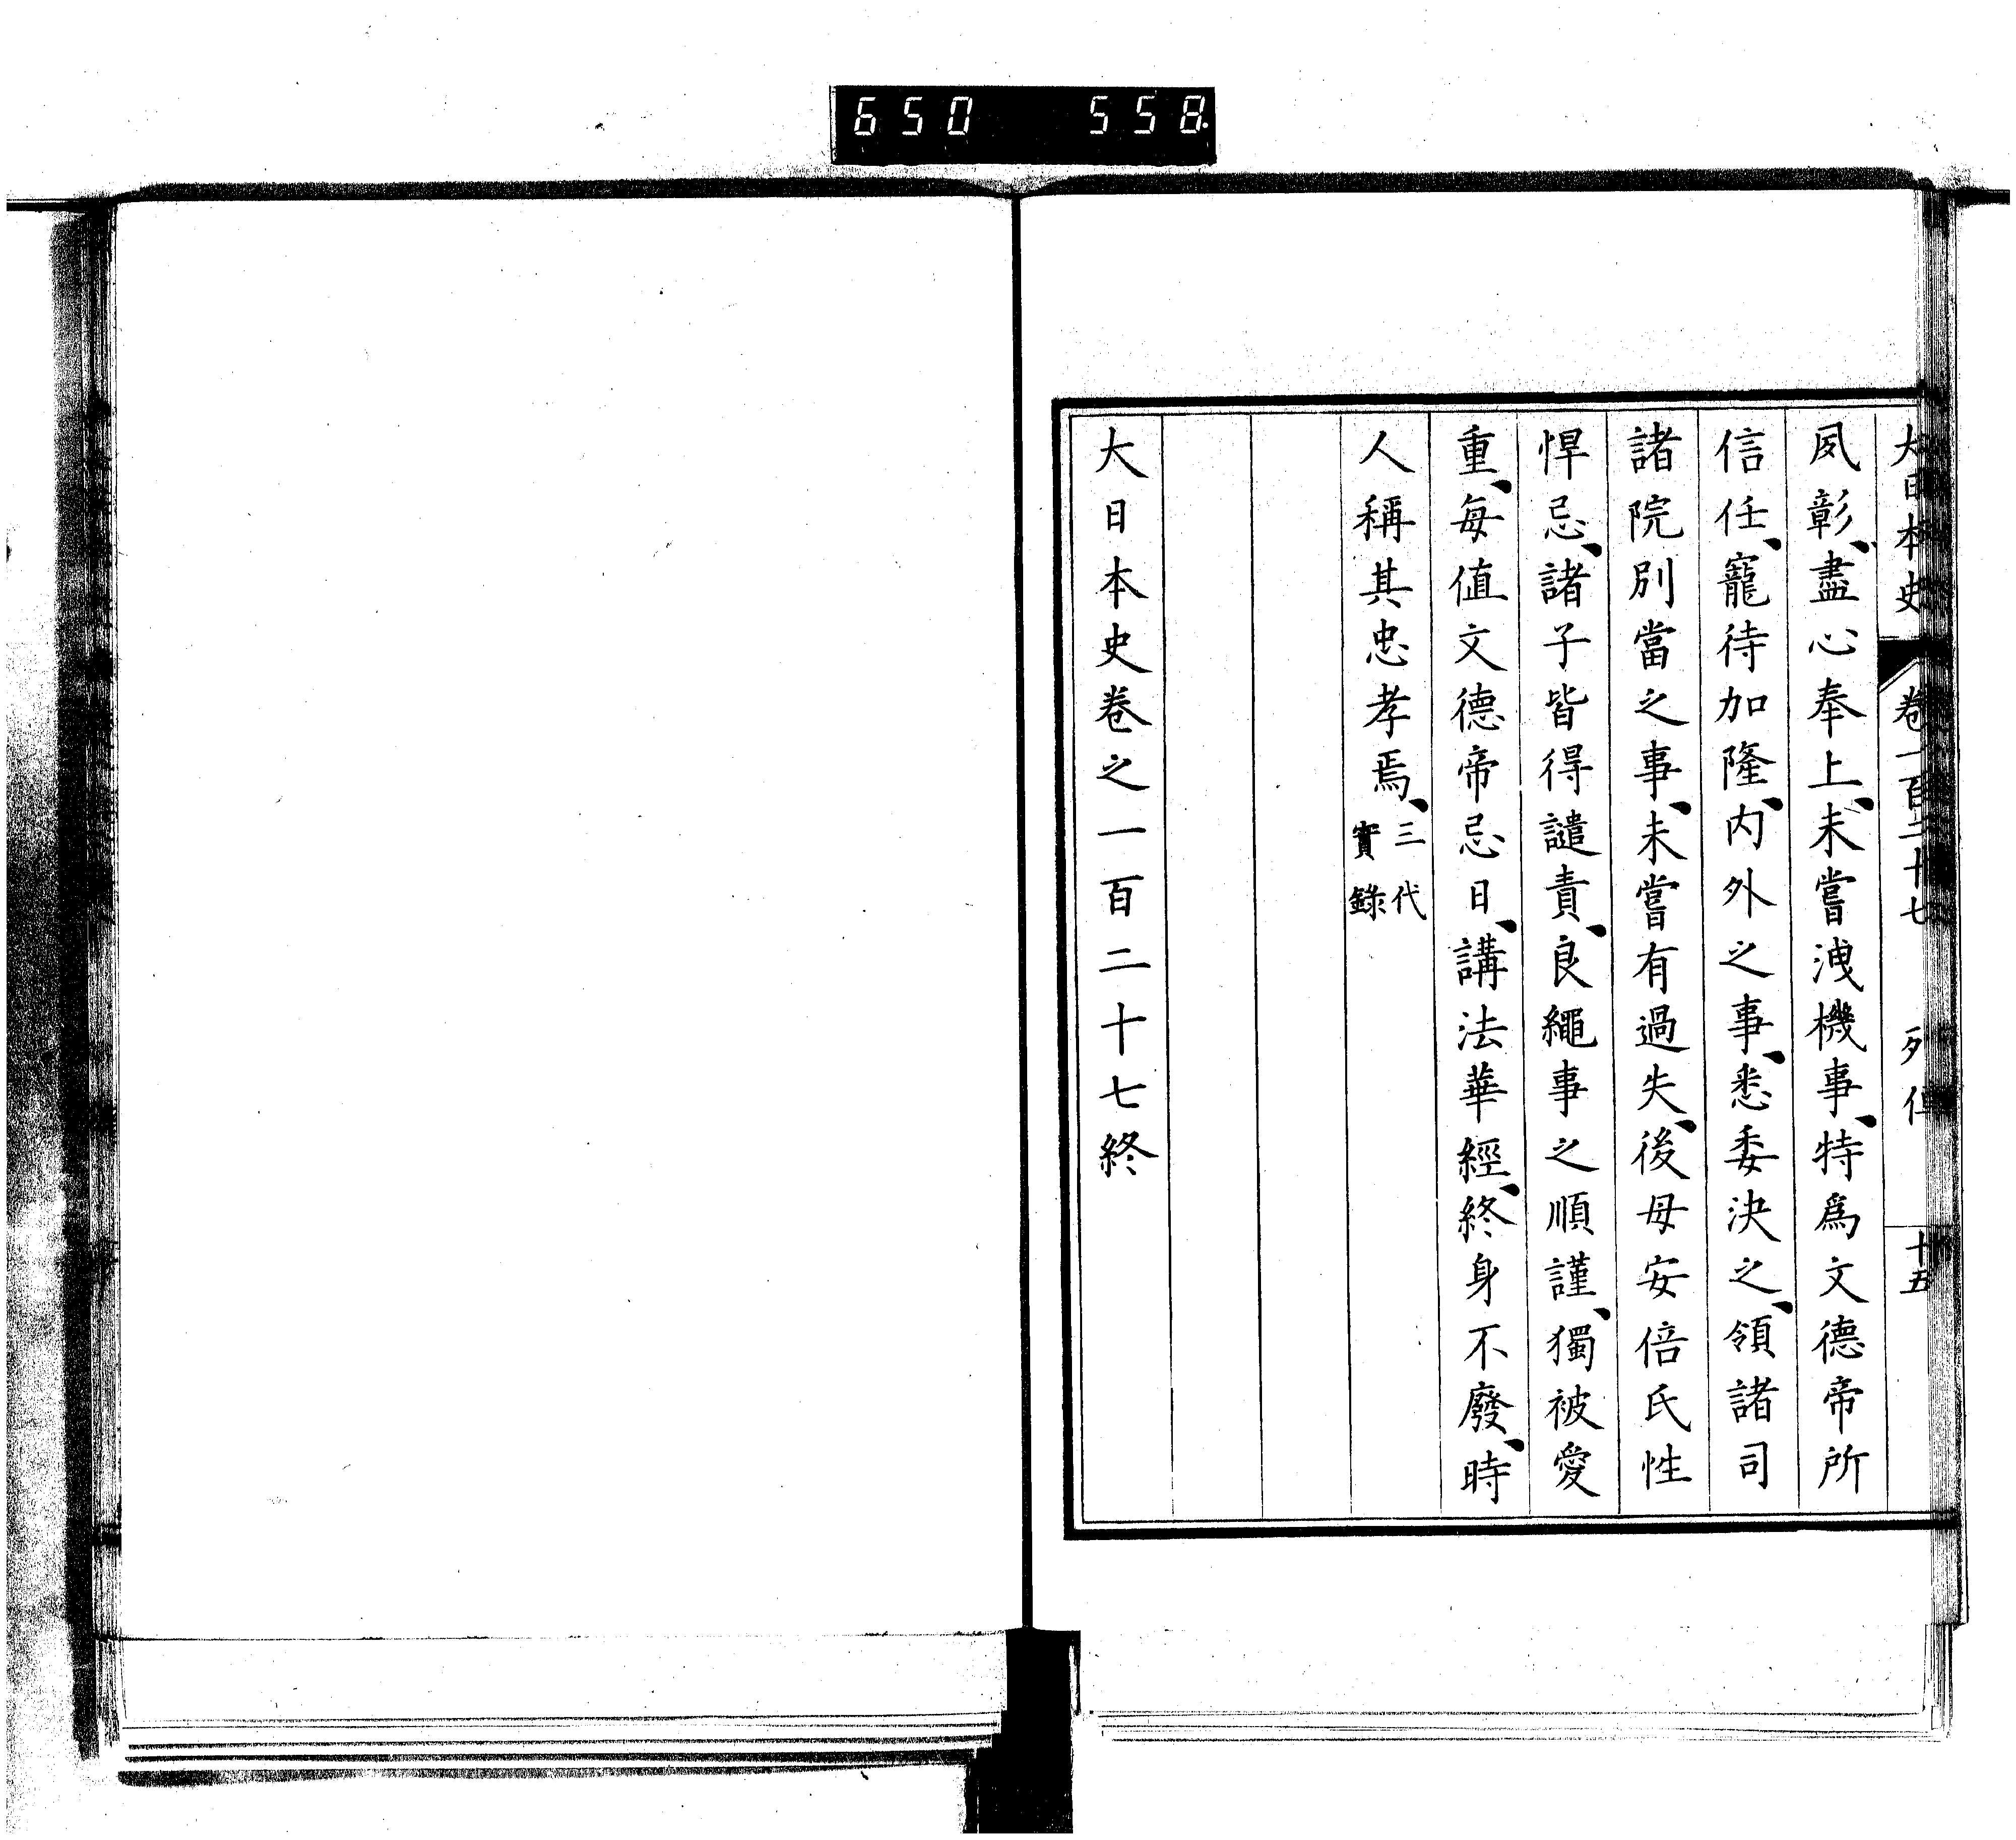 650 558
大日本史 卷一百二十七 列傳 十五
夙彰、盡心奉上、未嘗洩機事、特爲文德帝所
信任、寵待加隆、内外之事、悉委決之、領諸司
諸院別當之事、未嘗有過失、後母安倍氏性
悍忌、諸子皆得譴責、良繩事之順謹、獨被愛
重、每值文德帝忌日、講法華經、終身不廢、時
人稱其忠孝焉、三代
實錄
大日本史卷之一百二十七終